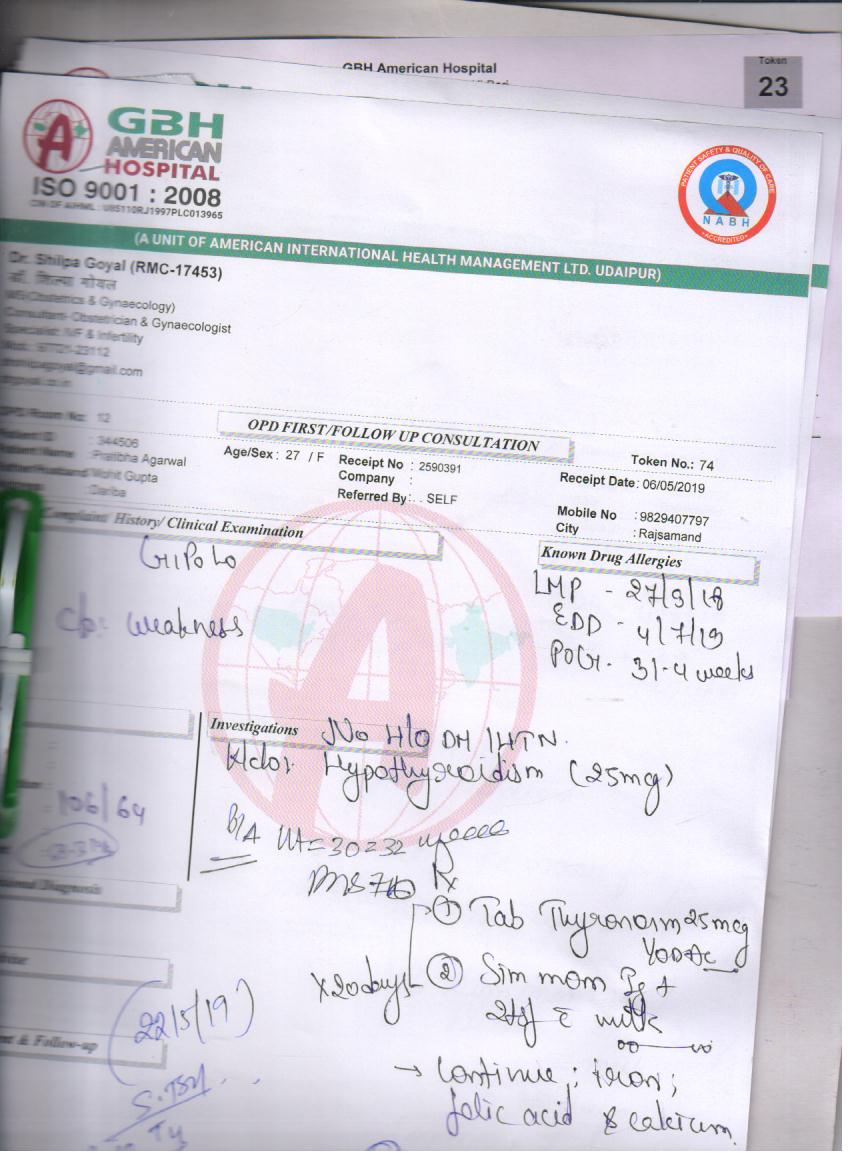 GBH American Hospital
Token
23
GBH
AMERICAN
HOSPITAL
ISO 9001 : 2008
CIN OF AIHML : U85110RJ1997PLC013965
PATIENT SAFETY & QUALITY OF CARE
NABH
ACCREDITED
(A UNIT OF AMERICAN INTERNATIONAL HEALTH MANAGEMENT LTD. UDAIPUR)
Dr. Shilpa Goyal (RMC-17453)
डॉ. शिल्पा गोयल
MS(Obstetrics & Gynaecology)
Consultant- Obstetrician & Gynaecologist
Specialist: IVF & Infertility
@gmail.com
OPD Room No: 12
OPD FIRST/FOLLOW UP CONSULTATION
Token No.: 74
Patient ID : 344506
Patient Name : Pratibha Agarwal
Mohit Gupta
: Dariba
Age/Sex : 27 / F
Receipt No : 2590391
Company :
Referred By : . SELF
Receipt Date: 06/05/2019
Mobile No : 9829407797
City : Rajsamand
Complaint/ History/ Clinical Examination
Known Drug Allergies
G1P0L0
c/o: weakness
LMP - 27/9/18
EDD - 4/7/19
POG. 31-4 weeks
Investigations
No H/O DM / HTN.
K/c/o: Hypothyroidism (25mg)
106/64
P/A UT = 30-32 weeks
Rx
① Tab Thyronorm 25mcg
② Sim mom
x20days
2tsf c̄ milk
(22/5/19)
→ Continue ; iron ;
folic acid & calcium.
& Follow-up
S. TSH